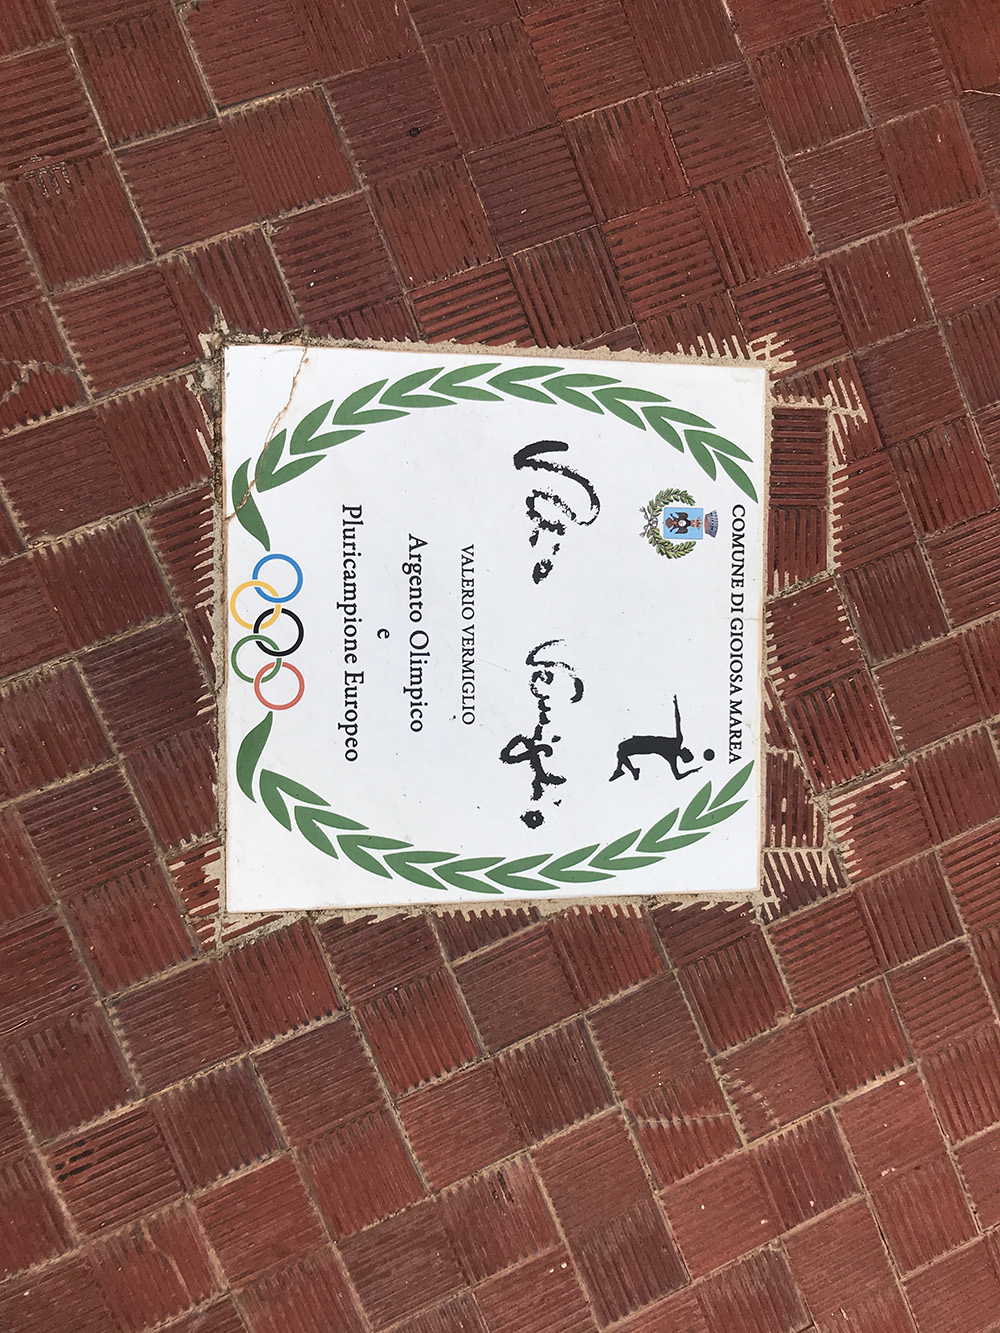 COMUNE DI GIOIOSA MAREA
Valerio Vermiglio
VALERIO VERMIGLIO
Argento Olimpico
e
Pluricampione Europeo